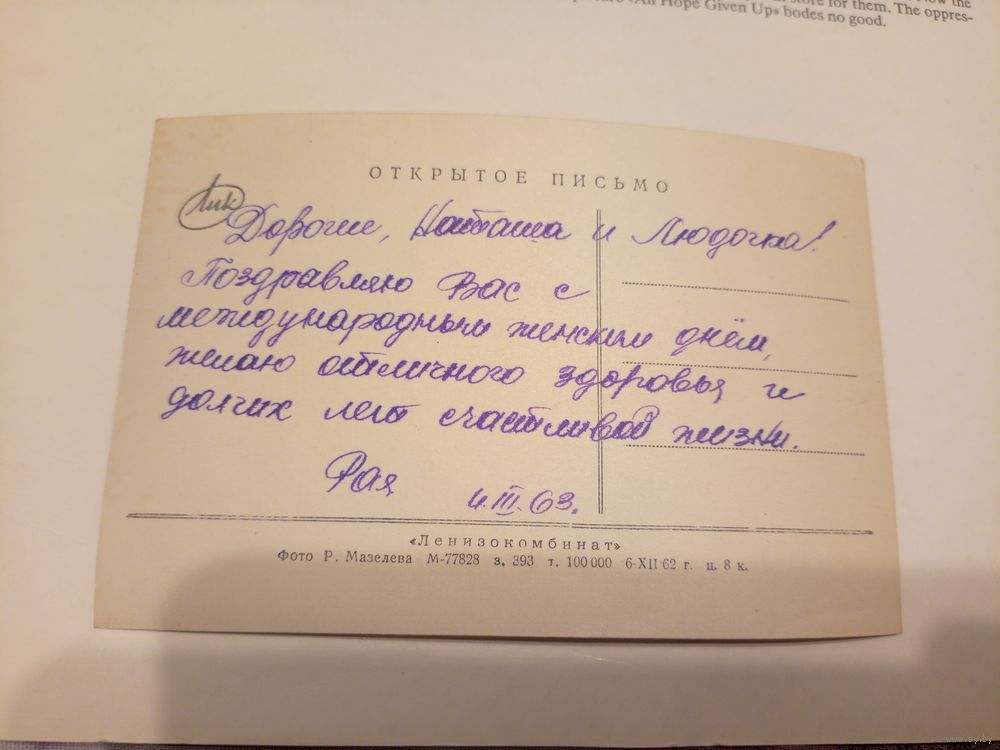 store for them. The oppres-
«All Hope Given Up» bodes no good.
ОТКРЫТОЕ ПИСЬМО
Лик
Дорогие, Наташа и Людочка!
Поздравляю Вас с
международным женским днём,
желаю отличного здоровья и
долгих лет счастливой жизни.
Рая 4.III.63.
«Ленизокомбинат»
Фото Р. Мазелева М-77828 з. 393 т. 100 000 6-XII 62 г. ц. 8 к.